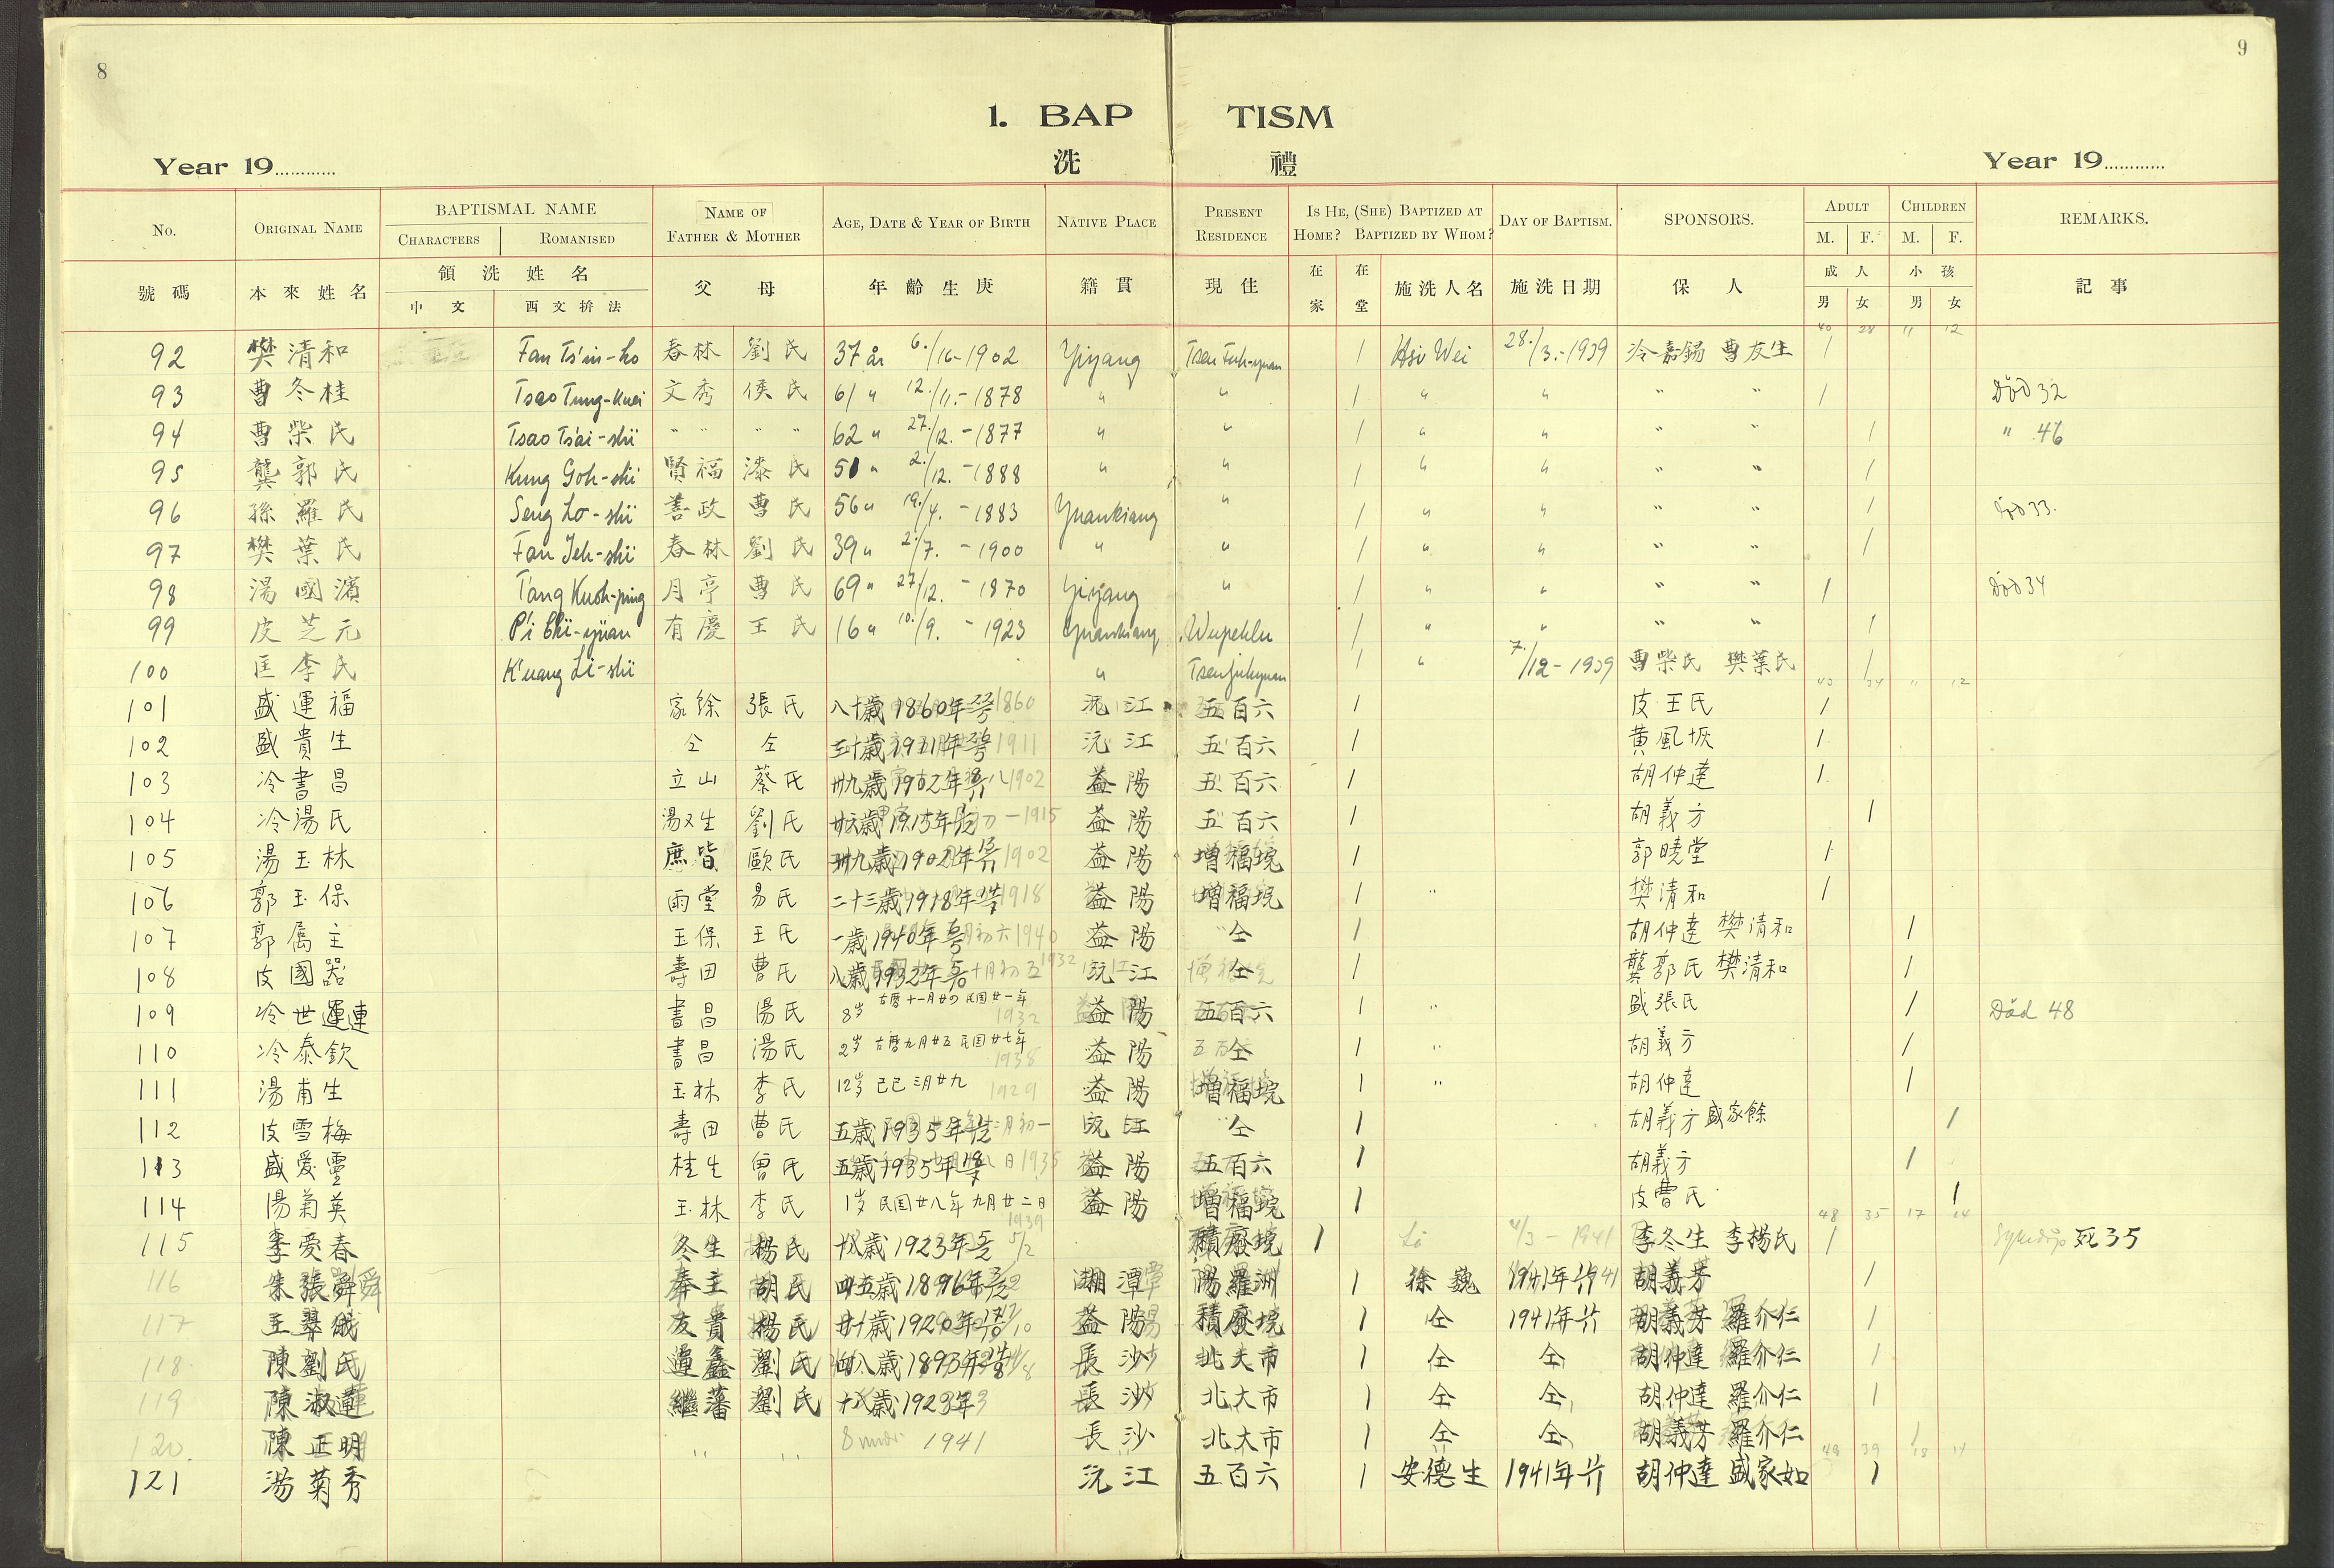 8
9
1. BAP TISM
洗 禮
Year 19............ Year 19............
No. ORIGINAL NAME BAPTISMAL NAME CHARACTERS ROMANISED NAME OF FATHER & MOTHER AGE, DATE & YEAR OF BIRTH NATIVE PLACE PRESENT RESIDENCE IS HE, (SHE) BAPTIZED AT HOME? BAPTIZED BY WHOM? DAY OF BAPTISM. SPONSORS. ADULT M. F. CHILDREN M. F. REMARKS.
號碼 本來姓名 領洗姓名 中文 西文拚法 父母 年齡生庚 籍貫 現住 在家 在堂 施洗人名 施洗日期 保人 成人 男 女 小孩 男 女 記事
40 28 11 12
92 樊清和 Fan Ts'in-ho 春林 劉氏 37 år 6./16-1902 Yiyang Tsen Fuh-yuan 1 Hsu Wei 28./3.-1939 冷嘉錫 曹友生 1
93 曹冬桂 Tsao Tung-kuei 文秀 侯氏 61 " 12./11.-1878 " " 1 " " " " 1 Död 32
94 曹柴氏 Tsao Ts'ai-shï " " " " 62 " 27./12.-1877 " " 1 " " " " 1 " 46
95 龔郭氏 Kung Goh-shï 賢福 漆氏 51 " 2./12.-1888 " " 1 " " " " 1
96 孫羅氏 Seng Lo-shï 善政 曹氏 56 " 19./4.-1883 Yuankiang " 1 " " " " 1 Död 33.
97 樊葉氏 Fan Yeh-shï 春林 劉氏 39 " 2./7.-1900 " " 1 " " " " 1
98 湯國濱 T'ang Kuoh-ping 月亭 曹氏 69 " 27./12.-1870 Yiyang " 1 " " " " 1 Död 34
99 皮芝元 P'i Chï-yüan 有慶 王氏 16 " 10./9.-1923 Yuankiang Wupehlu 1 " " " " 1
100 匡李氏 K'uang Li-shï " Tsenfuhyuan 1 " 7./12-1939 曹柴氏 樊葉氏 1
101 盛運福 家餘 張氏 八十歲 1860年 沅江 五百六 1 皮王氏 1
102 盛貴生 仝 仝 三十歲 1911年 沅江 五百六 1 黃風恢 1
103 冷書昌 立山 蔡氏 卅九歲 1902年 益陽 五百六 1 胡仲達 1
104 冷湯氏 湯又生 劉氏 廿六歲 1915年 益陽 五百六 1 胡義方 1
105 湯玉林 庶皆 歐氏 卅九歲 1902年 益陽 增福垸 1 郭曉堂 1
106 郭玉保 雨堂 易氏 二十三歲 1918年 益陽 增福垸 1 " 樊清和 1
107 郭厲主 玉保 王氏 一歲 1940年 益陽 仝 1 胡仲達 樊清和 1
108 皮國器 壽田 曹氏 八歲 1932年 沅江 仝 1 龔郭氏 樊清和 1
109 冷世運連 書昌 湯氏 8岁 古曆十一月廿四 民国廿一年 1932 益陽 五百六 1 " 盛張氏 1 Död 48
110 冷泰欽 書昌 湯氏 2岁 古曆九月廿五 民国廿七年 1938 益陽 仝 1 " 胡義方 1
111 湯甫生 玉林 李氏 12岁 己巳三月廿九 1929 益陽 增福垸 1 " 胡仲達 1
112 皮雪梅 壽田 曹氏 五歲 1935年 沅江 仝 1 胡義方 盛家餘 1
113 盛爱靈 桂生 曾氏 五歲 1935年 益陽 五百六 1 胡義方 1
114 湯菊英 玉林 李氏 1岁 民国廿八年九月廿二日 1939 益陽 增福垸 1 皮曹氏 1
48 35 17 14
115 李爱春 冬生 楊氏 十八歲 1923年 積廢垸 1 Li 4/3-1941 李冬生 李楊氏 1 死35
116 朱張舜 奉主 胡氏 四五歲 1896年 湘潭 陽羅洲 1 徐巍 1941年 胡義芳 1
117 王翠娥 友貴 楊氏 廿一歲 1920年 益陽 積廢垸 1 仝 1941年 胡義芳 羅介仁 1
118 陳劉氏 運鑫 劉氏 四八歲 1893年 長沙 北大市 1 仝 仝 胡仲達 羅介仁 1
119 陳淑蓮 繼藩 劉氏 十八歲 1923年 長沙 北大市 1 仝 仝 胡仲達 羅介仁 1
120. 陳正明 " " 8 mån 1941 長沙 北大市 1 仝 仝 胡義芳 羅介仁 1
49 39 18 14
121 湯菊秀 沅江 五百六 1 安德生 1941年 胡仲達 盛家如 1